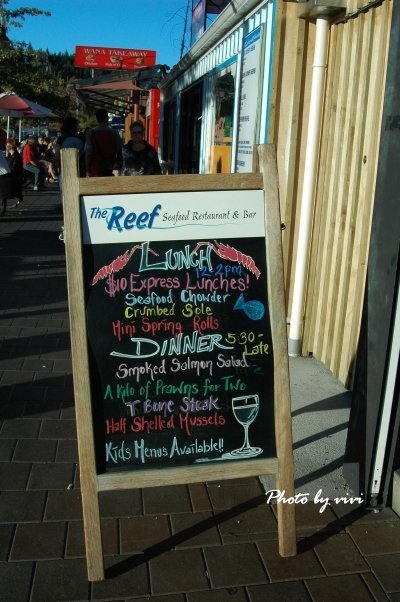 WANA TAKEAWAY
The Reef Seafood Restaurant & Bar
LUNCH
12-2pm
$10 Express Lunches!
Seafood Chowder
Crumbed Sole
Mini Spring Rolls
DINNER 5:30-Late
Smoked Salmon Salad
A Kilo of Prawns for Two
T Bone Steak
Half Shelled Mussels
Kids Menus Available!!
Photo by vivi